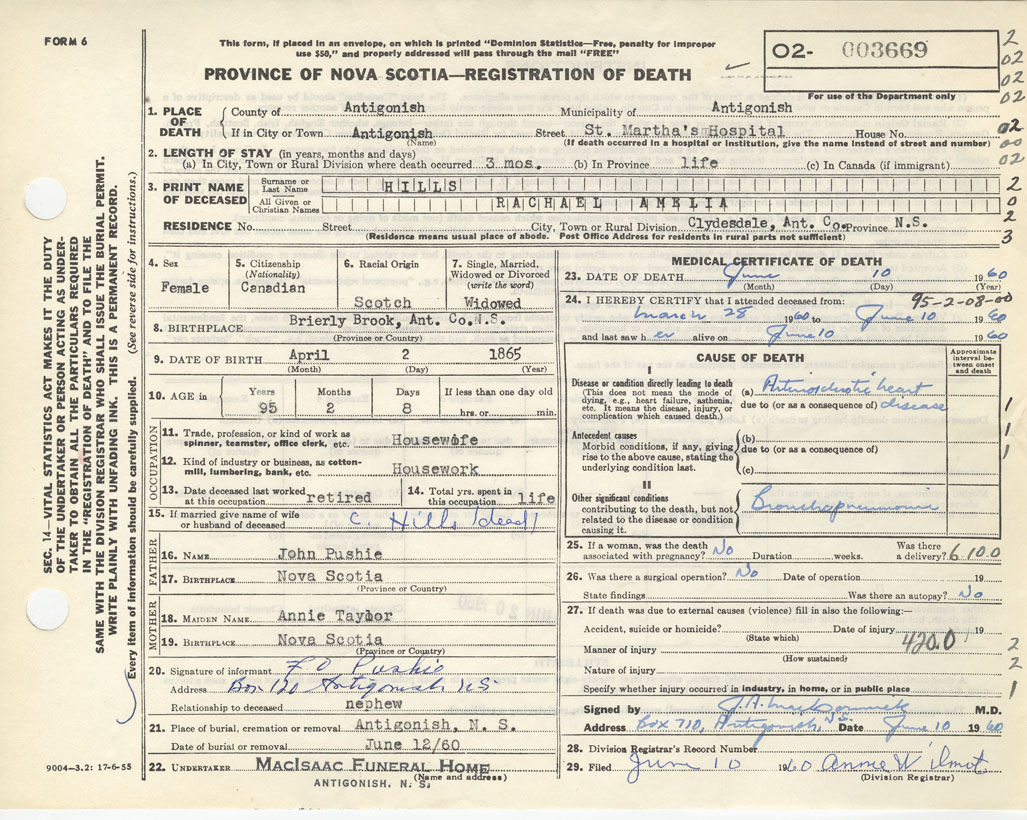 FORM 6
This form, if placed in an envelope, on which is printed "Dominion Statistics—Free, penalty for improper
use $50," and properly addressed will pass through the mail "FREE"
PROVINCE OF NOVA SCOTIA—REGISTRATION OF DEATH
02- 003669
For use of the Department only
2
02
02
02
1. PLACE OF DEATH
County of Antigonish Municipality of Antigonish
If in City or Town Antigonish Street St. Martha's Hospital House No. 02
(Name) (If death occurred in a hospital or institution, give the name instead of street and number) 00
2. LENGTH OF STAY (in years, months and days)
(a) In City, Town or Rural Division where death occurred 3 mos. (b) In Province life (c) In Canada (if immigrant) 02
3. PRINT NAME OF DECEASED
Surname or Last Name HILLS 2
All Given or Christian Names RACHAEL AMELIA 0
2
RESIDENCE No. Street City, Town or Rural Division Clydesdale, Ant. Co. Province N.S.
(Residence means usual place of abode. Post Office Address for residents in rural parts not sufficient) 3
4. Sex
Female
5. Citizenship
(Nationality)
Canadian
6. Racial Origin
Scotch
7. Single, Married,
Widowed or Divorced
(write the word)
Widowed
8. BIRTHPLACE Brierly Brook, Ant. Co.N.S.
(Province or Country)
9. DATE OF BIRTH April 2 1865
(Month) (Day) (Year)
10. AGE in
Years Months Days If less than one day old
95 2 8 hrs. or min.
OCCUPATION
11. Trade, profession, or kind of work as
spinner, teamster, office clerk, etc. Housewife
12. Kind of industry or business, as cotton-
mill, lumbering, bank, etc. Housework
13. Date deceased last worked
at this occupation retired
14. Total yrs. spent in
this occupation life
15. If married give name of wife
or husband of deceased C. Hills (dead)
FATHER
16. NAME John Pushie
17. BIRTHPLACE Nova Scotia
(Province or Country)
MOTHER
18. MAIDEN NAME Annie Taylor
19. BIRTHPLACE Nova Scotia
(Province or Country)
20. Signature of informant F O Pushie
Address Box 120 Antigonish NS
Relationship to deceased nephew
21. Place of burial, cremation or removal Antigonish, N. S.
Date of burial or removal June 12/60
22. UNDERTAKER MACISAAC FUNERAL HOME
(Name and address)
ANTIGONISH, N. S.
MEDICAL CERTIFICATE OF DEATH
23. DATE OF DEATH June 10 1960
(Month) (Day) (Year)
24. I HEREBY CERTIFY that I attended deceased from: 95-2-08-00
March 28 1960 to June 10 1960
and last saw h er alive on June 10 1960
CAUSE OF DEATH
Approximate
interval be-
tween onset
and death
I
Disease or condition directly leading to death
(This does not mean the mode of
dying, e.g., heart failure, asthenia,
etc. It means the disease, injury, or
complication which caused death.)
(a) Arteriosclerotic heart
due to (or as a consequence of) disease
1
1
1
Antecedent causes
Morbid conditions, if any, giving
rise to the above cause, stating the
underlying condition last.
(b)
due to (or as a consequence of)
(c)
II
Other significant conditions
contributing to the death, but not
related to the disease or condition
causing it.
Bronchopneumonia
25. If a woman, was the death
associated with pregnancy? No Duration weeks. Was there
a delivery? 6100
26. Was there a surgical operation? No Date of operation 19
State findings Was there an autopsy? No
27. If death was due to external causes (violence) fill in also the following:—
Accident, suicide or homicide? Date of injury 19
(State which)
420.0
Manner of injury 2
(How sustained)
Nature of injury 2
Specify whether injury occurred in industry, in home, or in public place 1
Signed by M.D.
Address Box 710, Antigonish, N.S. Date June 10 1960
28. Division Registrar's Record Number
29. Filed June 10 1960 Annie Wilmot
(Division Registrar)
SEC. 14—VITAL STATISTICS ACT MAKES IT THE DUTY
OF THE UNDERTAKER OR PERSON ACTING AS UNDER-
TAKER TO OBTAIN ALL THE PARTICULARS REQUIRED
IN THE "REGISTRATION OF DEATH" AND TO FILE THE
SAME WITH THE DIVISION REGISTRAR WHO SHALL ISSUE THE BURIAL PERMIT.
WRITE PLAINLY WITH UNFADING INK. THIS IS A PERMANENT RECORD.
Every item of information should be carefully supplied. (See reverse side for instructions.)
9004-3.2: 17-6-55